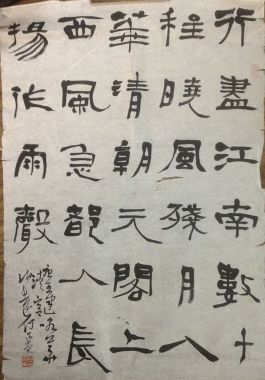 行盡江南數十
程曉風殘月入
華清朝元閣上
西風急都入長
揚作雨聲